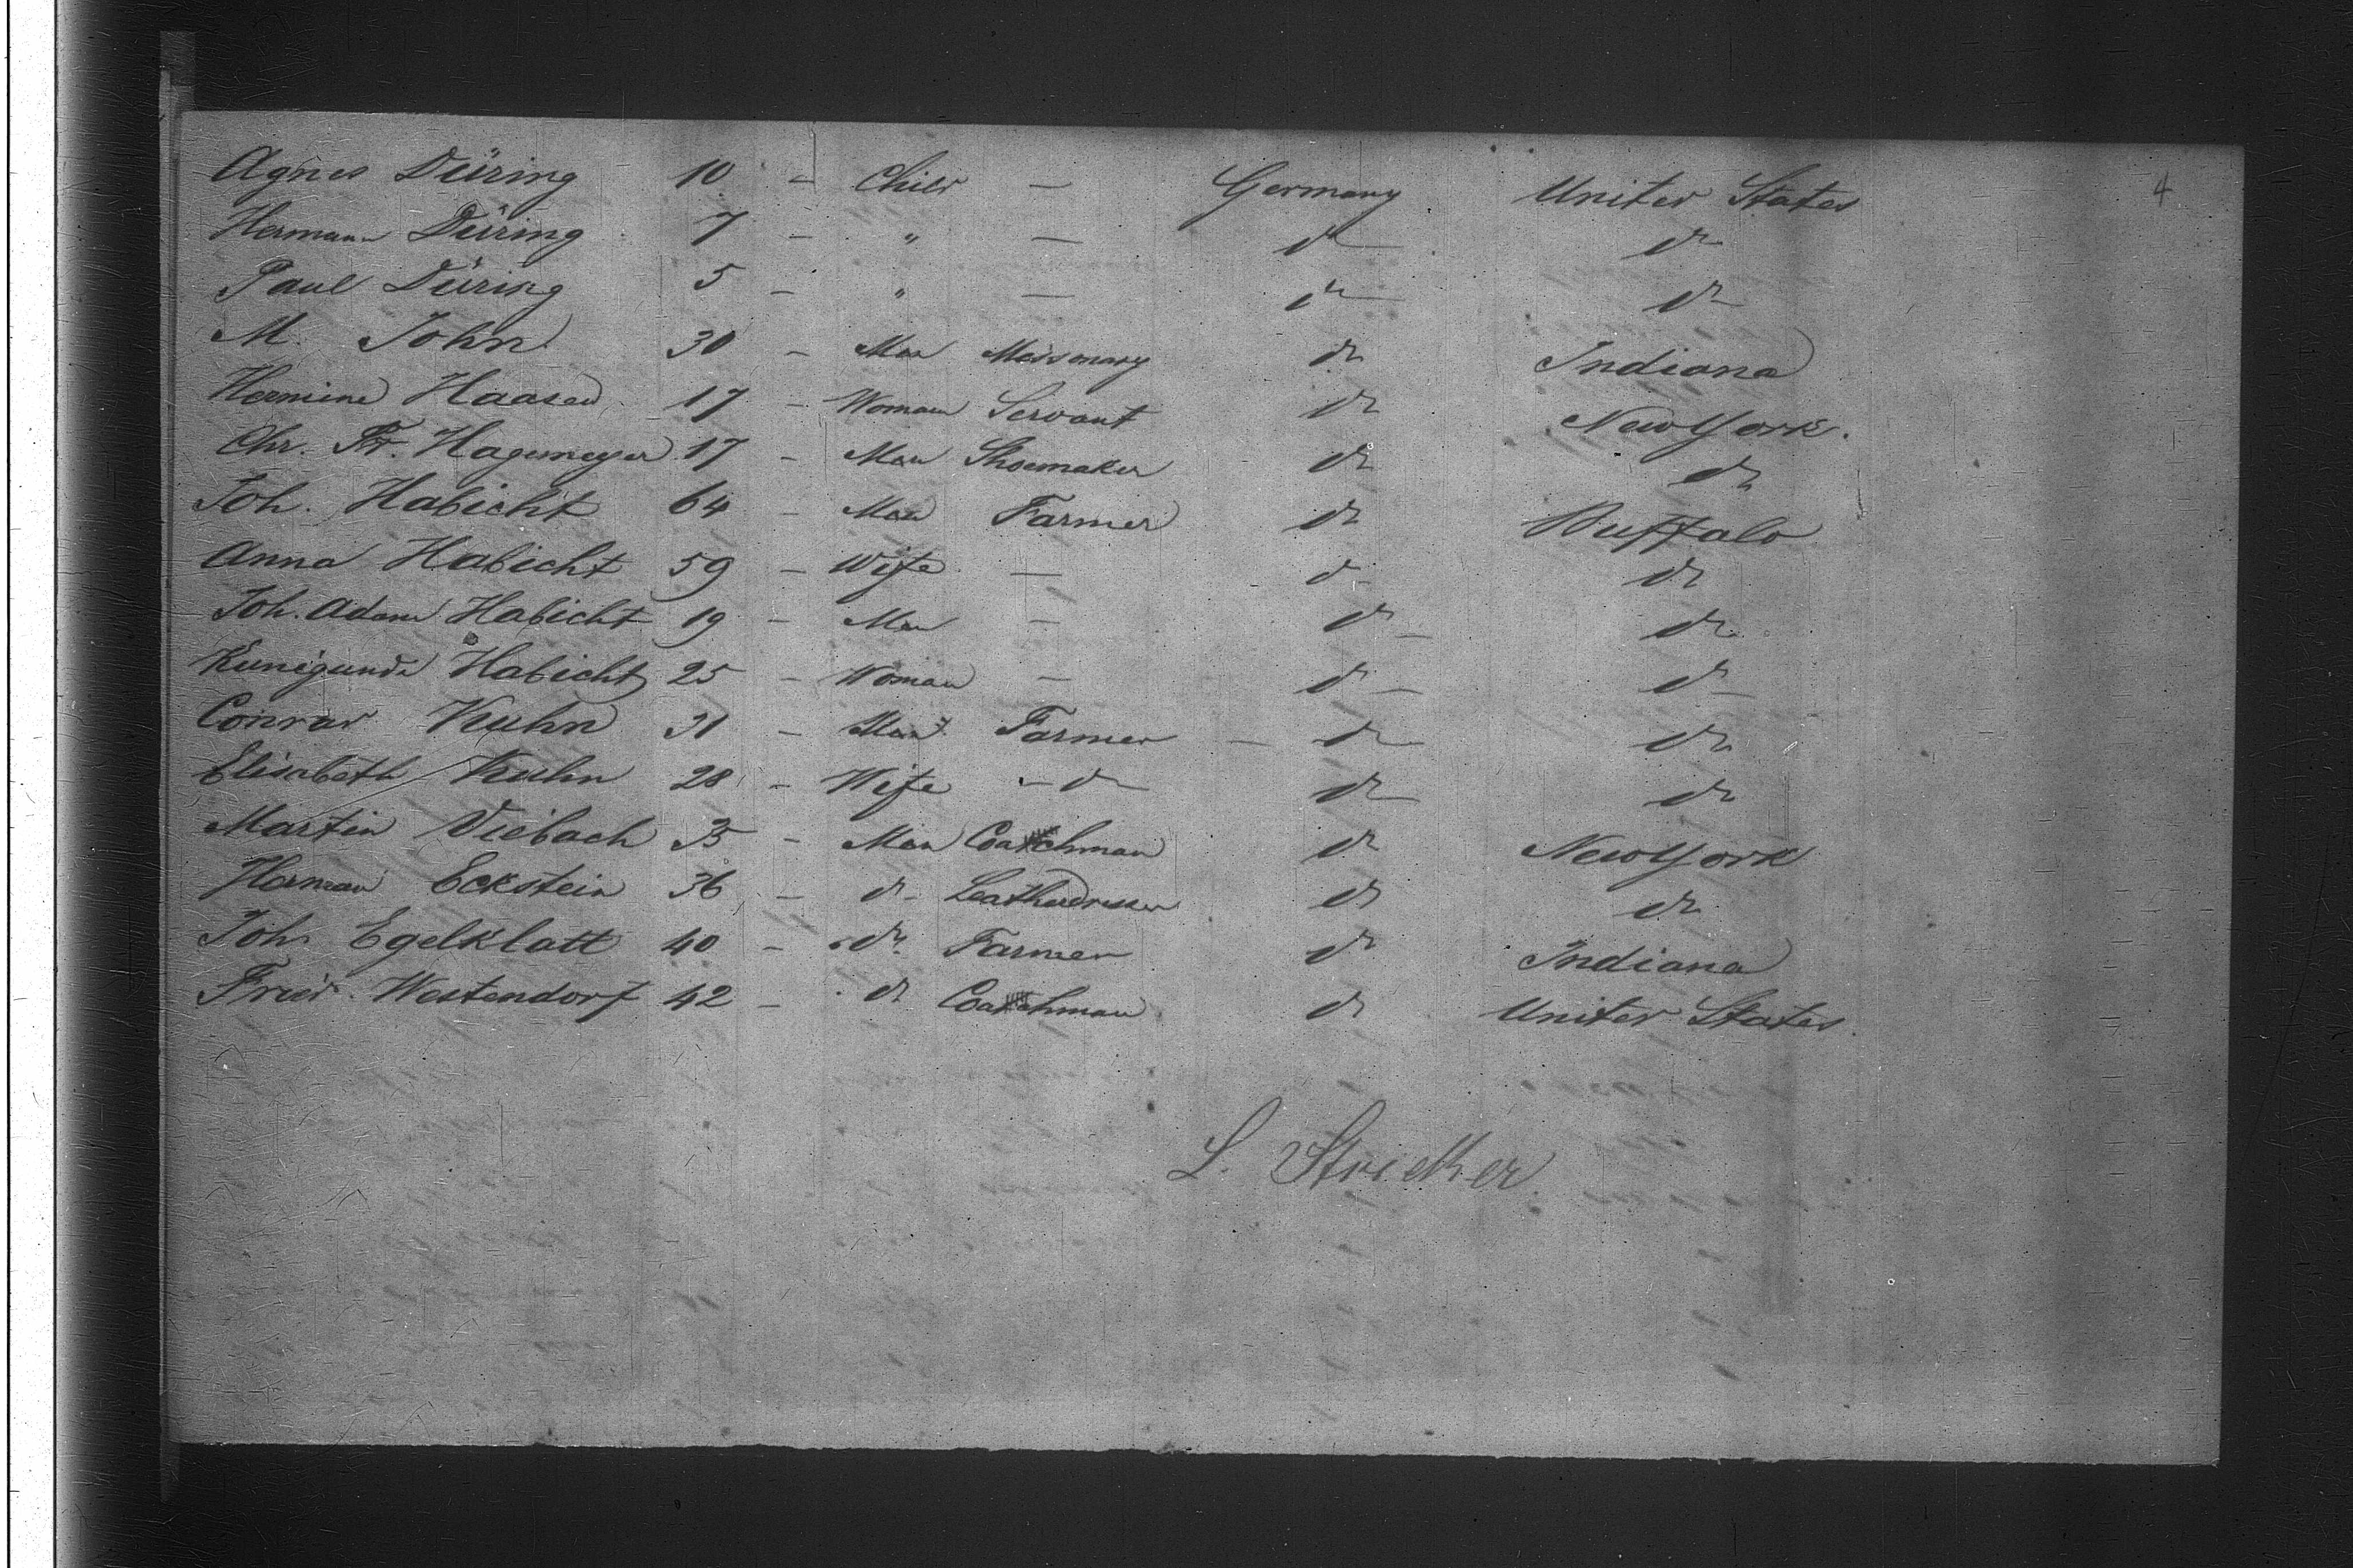 Agnes Düring 10 - Child - Germany United States 4
Hermann Düring 7 - " - do do
Paul Düring 5 - " - do do
M. John 30 - Man Missonary do Indiana
Hermine Haasen 17 - Woman Servant do New York.
Chr. Fr. Hagemeyer 17 - Man Shoemaker do do
Joh. Habicht 64 - Man Farmer do Buffalo
Anna Habicht 59 - Wife - do do
Joh. Adam Habicht 19 - Man - do do
Kunigunde Habicht 25 - Woman - do do
Conrad Kuhn 31 - Man Farmer - do do
Elisabeth Kuhn 28 - Wife - do do do
Martin Viebach - Man Coachman do New York
Herman Eckstein 36 - do Leatherdresser do do
Joh. Egelklatt 40 - do Farmer do Indiana
Fried. Westendorf 42 - do Coachman do United States
L. Stricker